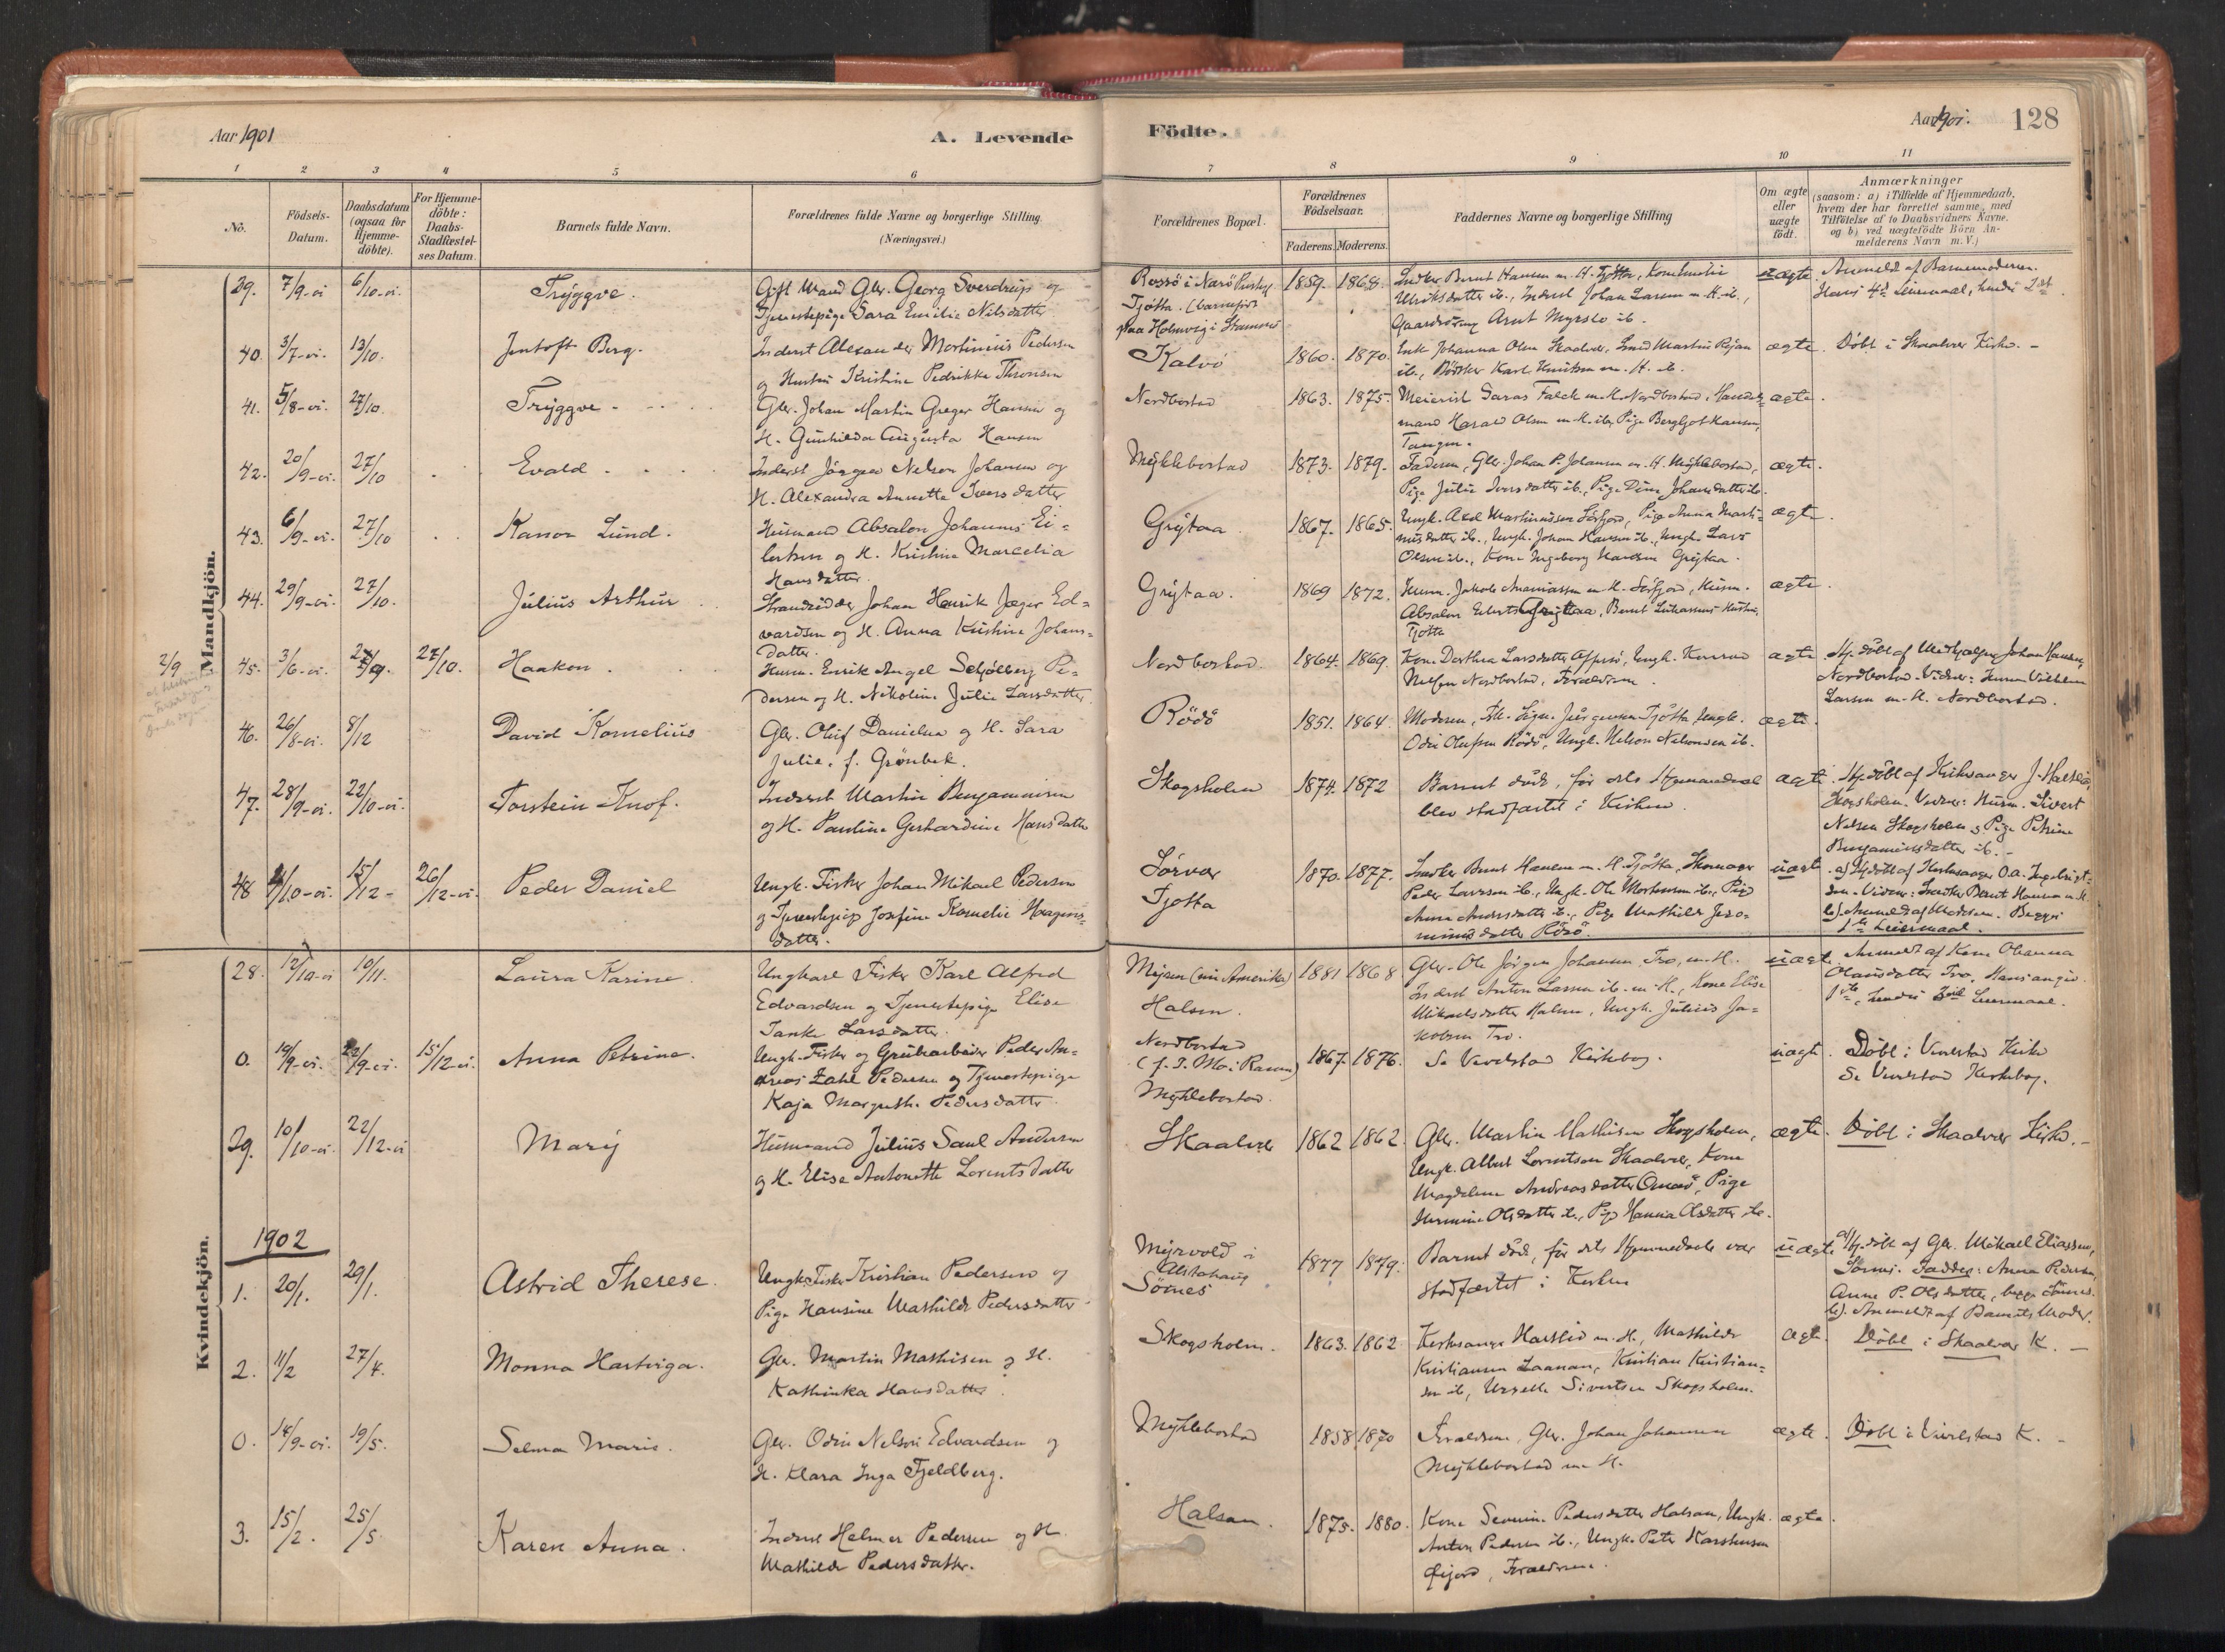 Aar 1901
A. Levende
Födte.
Aar 1901.
128
1 2 3 4 5 6 7 8 9 10 11
No.
Födsels-
Datum.
Daabsdatum
(ogsaa for
Hjemme-
döbte).
For Hjemme-
döbte:
Daabs-
Stadfæstel-
ses Datum.
Barnets fulde Navn.
Forældrenes fulde Navne og borgerlige Stilling
(Næringsvei.)
Forældrenes Bopæl.
Forældrenes
Födselsaar.
Faderens. Moderens.
Faddernes Navne og borgerlige Stilling
Om ægte
eller
uægte
födt.
Anmærkninger
(saasom: a) i Tilfælde af Hjemmedaab,
hvem der har forrettet samme, med
Tilföielse af to Daabsvidners Navne.
og b) ved uægtefödte Börn An-
melderens Navn m. V.)
Mandkjön.
39. 7/9-01 6/10-01. Tryggve.
Gift Mand Gbr. Georg Sverdrup og
Tjenestepige Sara Emilie Nilsdatter
Tjötta. (barnefödt
paa Holmvig i
1859. 1868.
Inderst Johan Larsen m. H. ib.,
uægte.
Anmeldt af Barnemoderen.
Hans 4de Leiermaal, hendes 2det
40. 3/7-01. 13/10. Jentoft Berg.
Inderst Alexander Mortinius Pedersen
og Hustru Kristine Pedrikke Thronsen
Kalvö
1860. 1870.
Enk. Johanna Olsen Skaalvær, Smed Martin
ib., Bödker Karl Knutsen m. H. ib.
ægte. Döbt i Skaalvær Kirke. -
41. 5/8-01. 27/10. Tryggve.
Gbr. Johan Martin Greger Hansen og
H. Gunhilda Augusta Hansen
Nordbostad
1863. 1875.
Meierist Falch m. H. Nordbostad, Handels-
mand Harald Olsen m. H. ib., Pige Bergljot Hansen,
Tangen.
ægte.
42. 20/9-01. 27/10 Evald.
Inderst Jörgen Nelson Johansen og
H. Alexandra Annette Iversdatter
Myklebostad
1873. 1879.
Faderen, Gbr. Johan P. Johansen m. H. Myklebostad,
Pige Julie Iversdatter ib., Pige Dina Johansdatter ib.
ægte.
43. 6/9-01. 27/10 Kanon Lund.
Husmand Absalon Johannes Ei-
lertsen og H. Kristine Marcelia
Hansdatter.
Grytaa.
1867. 1865.
Ungk. Axel Martinussen Sörfjord, Pige Anna Marti-
nusdatter ib., Ungk. Johan Hansen ib., Ungk. Lars
Olsen ib., Kone Ingeborg Hansen Grytaa.
ægte.
44. 29/9-01. 27/10. Julius Arthur
Strandsidder Johan Henrik Jæger Ed-
vardsen og H. Anna Kristine Johans-
datter.
Grytaa.
1869 1872.
Husm. Jakob Ananiassen m. H. Sörfjord, Husm.
Absalon Grytaa, Bernt
Tjötta
ægte.
2/9
45. 3/6-01. 27/10. Haakon.
Husm. Enrik Angel Schjölberg Pe-
dersen og H. Nikoline Julie Larsdatter.
Nordbostad.
1864. 1869.
Kone Dorthea Larsdatter Ungk. Konrad
Nilsen Nordbostad, Forældrene.
ægte.
Hj. döbt af Medhjælper Johan Hansen,
Nordbostad. Vidner: Husm. Vilhelm
Larsen m. H. Nordbostad.
46. 26/8-01. 8/12 David Kornelius
Gbr. Oluf Danielsen og H. Sara
Julie, f. Grönbek.
Rödö
1851. 1864.
Moderen, Frk. Signe Jürgensen Tjötta, Ungk.
Odin Olufsen Rödö, Ungk. Nelson Nelsonsen ib.
ægte.
47. 28/9-01. 22/10-01. Torstein Knof.
Inderst Martin Benjaminsen
og H. Pauline Gerhardine Hansdatter
Skogsholm
1874. 1872
Barnet döde, för dets Hjemmedaab
blev stadfæstet i Kirken.
ægte.
Hj. döbt af Kirkesanger J. Hartlid,
Skogsholm. Vidner: Husm. Sivert
Nelsen Skogsholm og Pige Petrine
Benjaminsdatter ib. -
48 4/10-01. 15/12 26/12-01. Peder Daniel
Ungk. Fisker Johan Mikael Pedersen
og Tjenestepige Josefine Kornelie Haagens-
datter.
Sörvær
Tjötta
1870. 1877.
Peder Larssen ib., Ungk. Ole Mortensen ib., Pige
Anna Andersdatter ib., Pige Mathilde Jero-
nimusdatter Rödö.
uægte
a) Hj. döbt af Kirkesanger O. A. Ingebrigt-
b). Anmeldt af Moderen. Begges
1ste Leiermaal.
Kvindekjön.
28. 12/10-01 10/11. Laura Karine
Ungkarl Fisker Karl Alfred
Edvardsen og Tjenestepige Elise
Tanke Larsdatter.
(nu Amerika)
Halsen.
1881 1868
Gbr. Ole Jörgen Johansen Tro, m. H.
Inderst Anton Larsen ib. m. H., Kone Elise
Mikaelsdatter Halsen, Ungk. Julius Ja-
kobsen Tro.
uægte.
Anmeldt af Kone Oleanna
Olausdatter Tro. Hans angiv.
1ste, hendes Leiermaal.
0. 19/9-01. 22/9-01. 15/12-01. Anna Petrine.
Ungk. Fisker og Grubearbeider Peder An-
dreas Zahl Pedersen og Tjenestepige
Kaja Margrethe Pedersdatter
Nordbostad
(f. T. Mo i Ranen)
Myklebostad.
1867. 1876.
Se Vevelstad Kirkebog.
uægte.
Döbt i Vevelstad Kirke
Se Vevelstad Kirkebog.
29. 10/10-01 22/12-01 Mary
Husmand Julius Saul Andersen
og H. Elise Antonette Lorentsdatter
Skaalvær
1862 1862.
Gbr. Martin Mathisen Skogsholm,
Ungk. Albert Lorentsen Skaalvær, Kone
Magdalene Andreasdatter Pige
Hermine Olsdatter ib., Pige Hanna Olsdatter ib.
ægte. Döbt i Skaalvær Kirke. -
1902
1. 20/1. 29/1. Astrid Therese.
Ungk. Fisker Kristian Pedersen og
Pige Hansine Mathilde Pedersdatter
Myrvold i
Alstahaug
Sörnes
1877 1879.
Barnet död, för dets Hjemmedaab var
stadfæstet i Kirken
uægte
a) Hj. döbt af Gbr. Mikael Eliassen,
Sörnes. Faddere: Anna Pedersen,
Anne P. Olsdatter, begge Sörnes.
b). Anmeldt af Barnets Moder.
2. 11/2 27/4. Monna Hartviga.
Gbr. Martin Mathisen og H.
Kathinka Hansdatter.
Skogsholm.
1863. 1862
Kirkesanger Hartlid m. H., Mathilde
Kristiansen Laanan, Kristian Kristian-
sen ib., Sivertsen Skogsholm.
ægte. Döbt i Skaalvær K. -
0. 14/9-01. 19/5. Selma Marie.
Gbr. Odin Nelson Edvardsen og
H. Klara Inga Fjeldberg.
Myklebostad
1858. 1870
Forældrene, Gbr. Johan Johansen
Myklebostad m. H.
ægte. Döbt i Vevelstad K. -
3. 15/2. 25/5 Karen Anna.
Inderst Helmer Pedersen og H.
Mathilde Pedersdatter.
Halsan.
1875. 1880.
Kone Severine Pedersdatter Halsan, Ungk.
Anton Pedersen ib., Ungk. Peter Karstensen
Forældrene.
ægte.